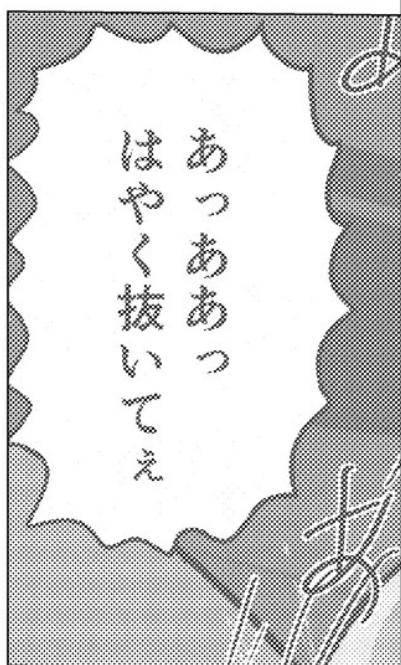 あっああっ
はやく抜いてぇ